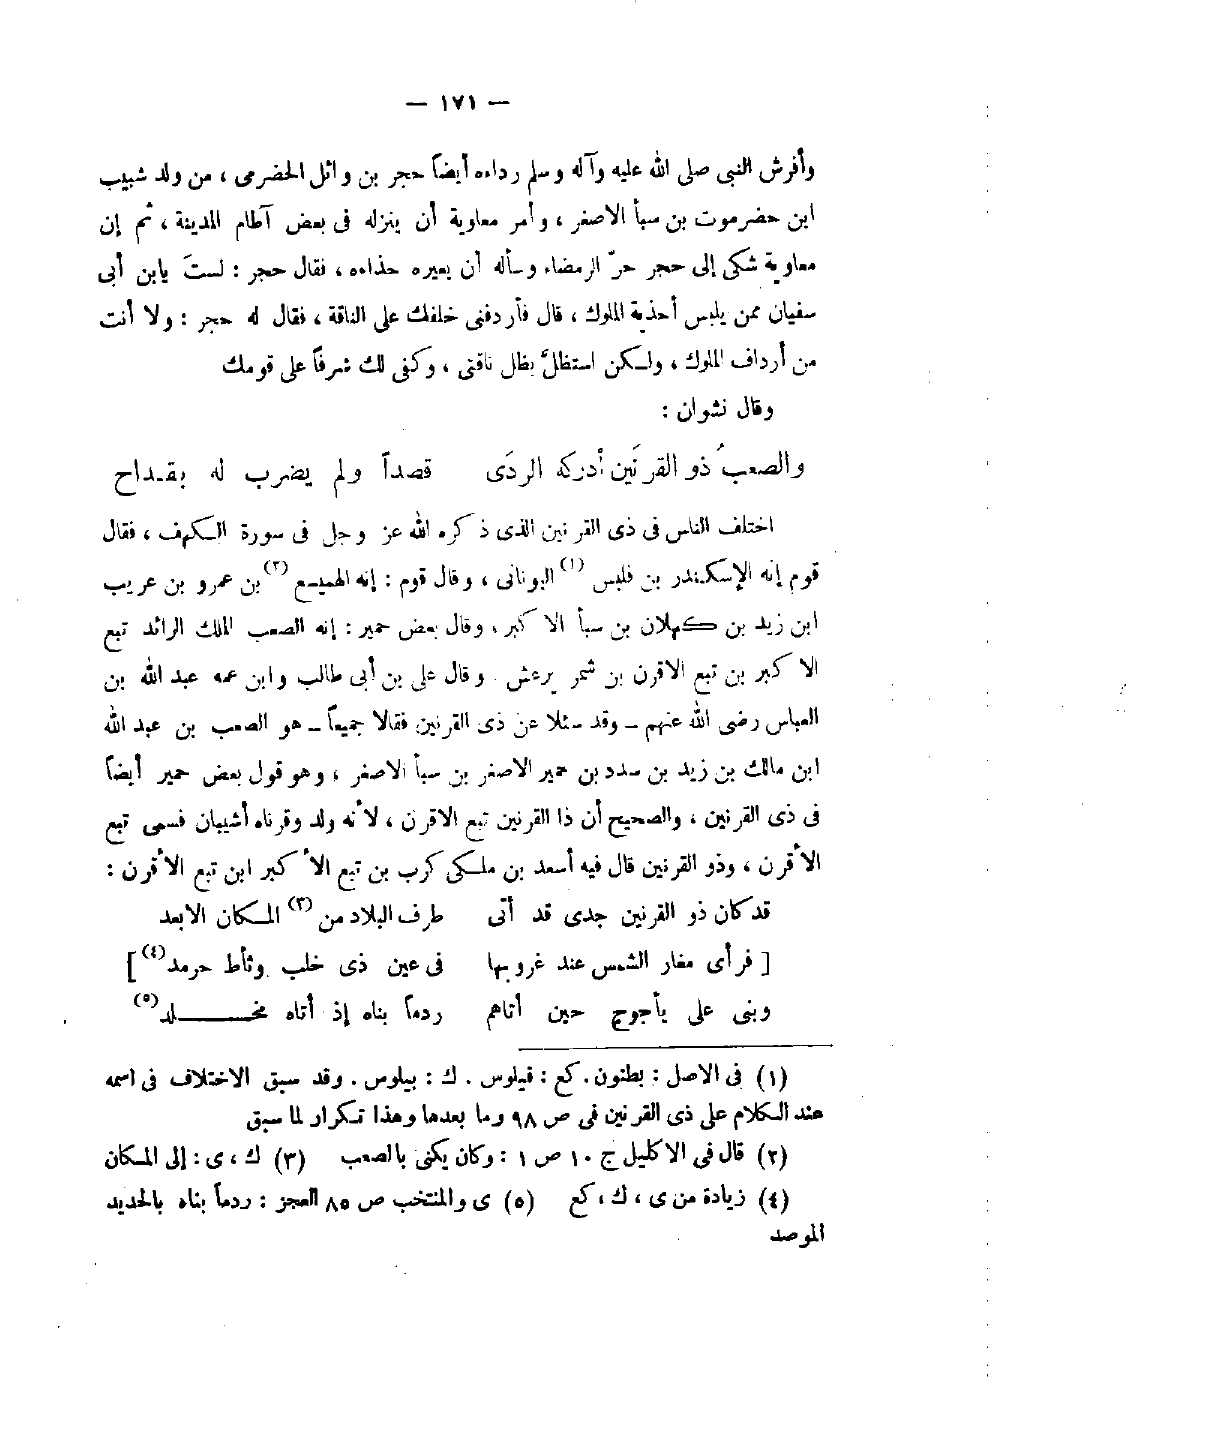 — ١٧١ —
وأفرش النبى صلى الله عليه وآله وسلم رداءه أيضاً حجر بن وائل الحضرمى ، من ولد شبيب
ابن حضرموت بن سبأ الاصغر ، وأمر معاوية أن ينزله فى بعض آطام المدينة ، ثم إن
معاوية شكى إلى حجر حرّ الرمضاء وسأله أن يعيره حذاءه ، فقال حجر : لستَ يابن أبى
سفيان ممن يلبس أحذية الملوك ، قال فأردفنى خلفك على الناقة ، فقال له حجر : ولا أنت
من أرداف الملوك ، ولكن استظلَّ بظل ناقتى ، وكفى لك شرفاً على قومك
وقال نشوان :
والصعبُ ذو القرنَين أدركه الردَى قصداً ولم يضرب له بقداح
اختلف الناس فى ذى القرنين الذى ذكره الله عز وجل فى سورة الكهف ، فقال
قوم إنه الإسكندر بن فلبس (١) اليونانى ، وقال قوم : إنه الهميسع (٢) بن عمرو بن عريب
ابن زيد بن كهلان بن سبأ الاكبر ، وقال بعض حمير : إنه الصعب الملك الرائد تبع
الاكبر بن تبع الاقرن بن شمر يرعش . وقال على بن أبى طالب وابن عمه عبد الله بن
العباس رضى الله عنهم ــ وقد سئلا عن ذى القرنين فقالا جميعاً ــ هو الصعب بن عبد الله
ابن مالك بن زيد بن سدد بن حمير الاصغر بن سبأ الاصغر ، وهو قول بعض حمير أيضاً
فى ذى القرنين ، والصحيح أن ذا القرنين تبع الاقرن ، لأنه ولد وقرناه أشيبان فسمى تبع
الأقرن ، وذو القرنين قال فيه أسعد بن ملكى كرب بن تبع الأكبر ابن تبع الأقرن :
قد كان ذو القرنين جدى قد أتى طرف البلاد من (٣) المكان الابعد
[ فرأى مغار الشمس عند غروبها فى عين ذى خلب وثأط حرمد (٤) ]
وبنى على يأجوج حين أتاهم ردماً بناه إذ أتاه مخلد (٥)
(١) فى الاصل : بطنون . كع : فيلوس . ك : بيلوس . وقد سبق الاختلاف فى اسمه
عند الكلام على ذى القرنين فى ص ٩٨ وما بعدها وهذا تكرار لما سبق
(٢) قال فى الاكليل ج ١٠ ص ١ : وكان يكنى بالصعب (٣) ك ، ى : إلى المكان
(٤) زيادة من ى ، ك ، كع (٥) ى والمنتخب ص ٨٥ العجز : ردماً بناه بالحديد
الموصد